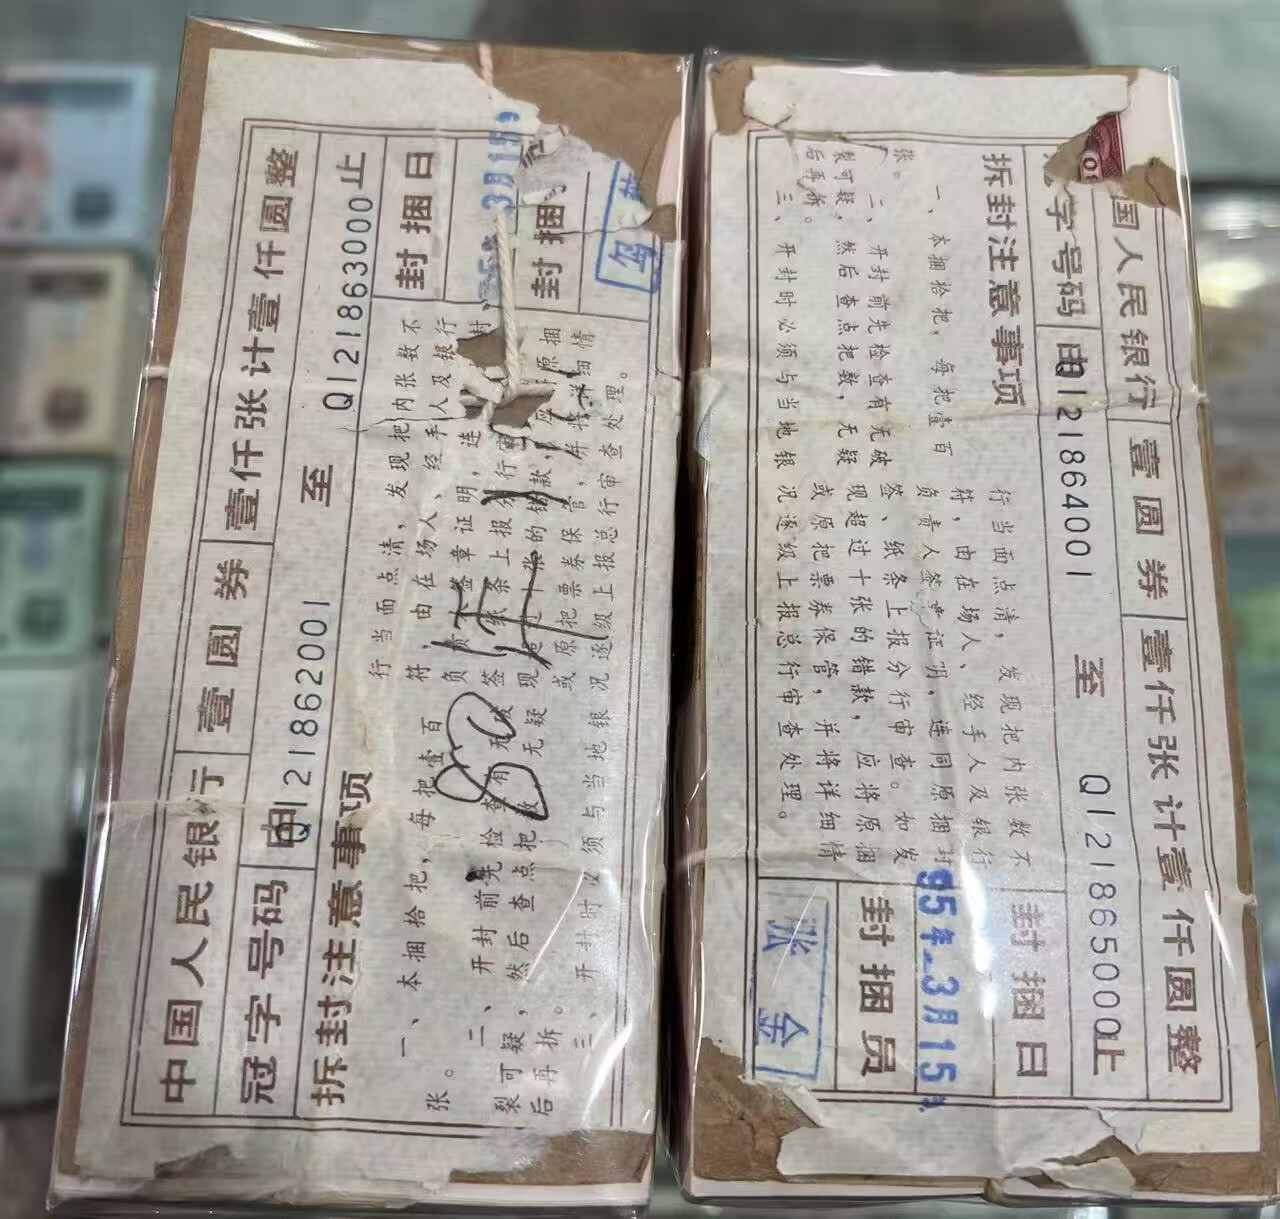 中国人民银行 壹圆券 壹仟张计壹仟圆整
冠字号码 由 Q121862001 至 Q121863000 止
拆封注意事项
一、本捆拾把,每把壹百
张。
二、开封前先检查有无破
裂可疑,然后查点把数,无疑
后再拆。
三、开封时必须与当地银
行当面点清,发现把内张数不
符,由在场人、经手人及银行
负责人签章证明,连
签 条上报分行审
现 十张的错款,
或原把票券保管,并将详细情
况逐级上报总行审查处理。
封捆日
95年3月15
封捆
国人民银行 壹圆券 壹仟张计壹仟圆整
字号码 由 Q121864001 至 Q121865000 止
拆封注意事项
一、本捆拾把,每把壹百
张。
二、开封前先检查有无破
裂可疑,然后查点把数,无疑
后再拆。
三、开封时必须与当地银
行当面点清,发现把内张数不
符,由在场人、经手人及银行
负责人签章证明,连同原捆封
签、纸条上报分行审查。如发
现超过十张的错款,应将原捆
或原把票券保管,并将详细情
况逐级上报总行审查处理。
封捆日
95年3月15
封捆员
张金